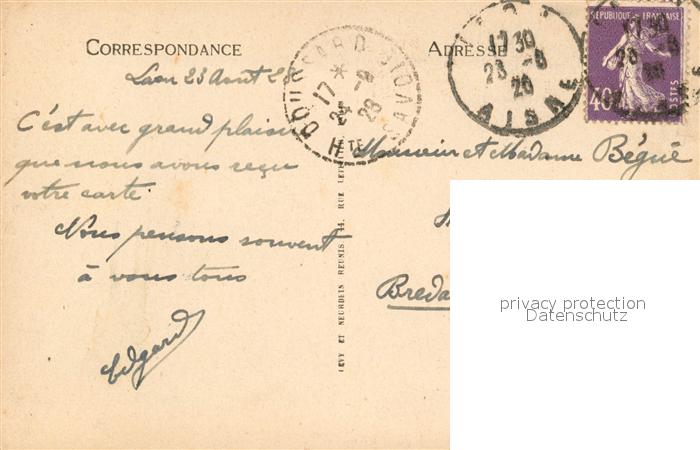 CORRESPONDANCE
ADRESSE
Laon 23 Août 28
C'est avec grand plaisir
que nous avons reçu
votre carte.
Nous pensons souvent
à vous tous
Edgard
LEVY ET NEURDEIN REUNIS, 44, RUE LE
17 *
24 -8
28
Hte
17 30
23 -8
28
AISNE
REPUBLIQUE FRANÇAISE
40c
POSTES
Monsieur et Madame Bégué
Breda
privacy protection
Datenschutz